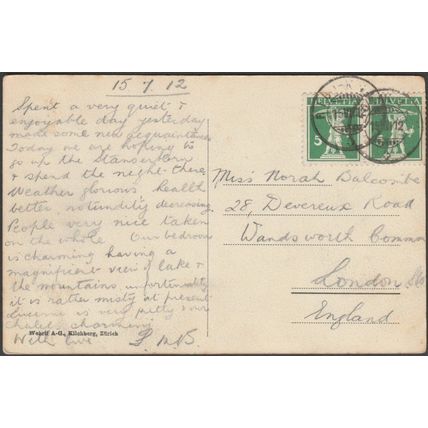 15/7/12
Spent a very quiet &
enjoyable day yesterday,
made some new acquaintances
Today we are hoping to
go up the Stanserhorn
& spend the night there.
Weather glorious, health
better, rotundity decreasing.
People very nice taken
on the whole. Our bedroom
is charming having a
magnificent view of lake &
the mountains unfortunately
it is rather misty at present
Lucerne is very pretty & our
chalet charming
With love
Wehrli A-G., Kilchberg, Zürich
HELVETIA
5
HELVETIA
5
Miss Norah Balcombe
28, Devereux Road
Wandsworth Common
London
England